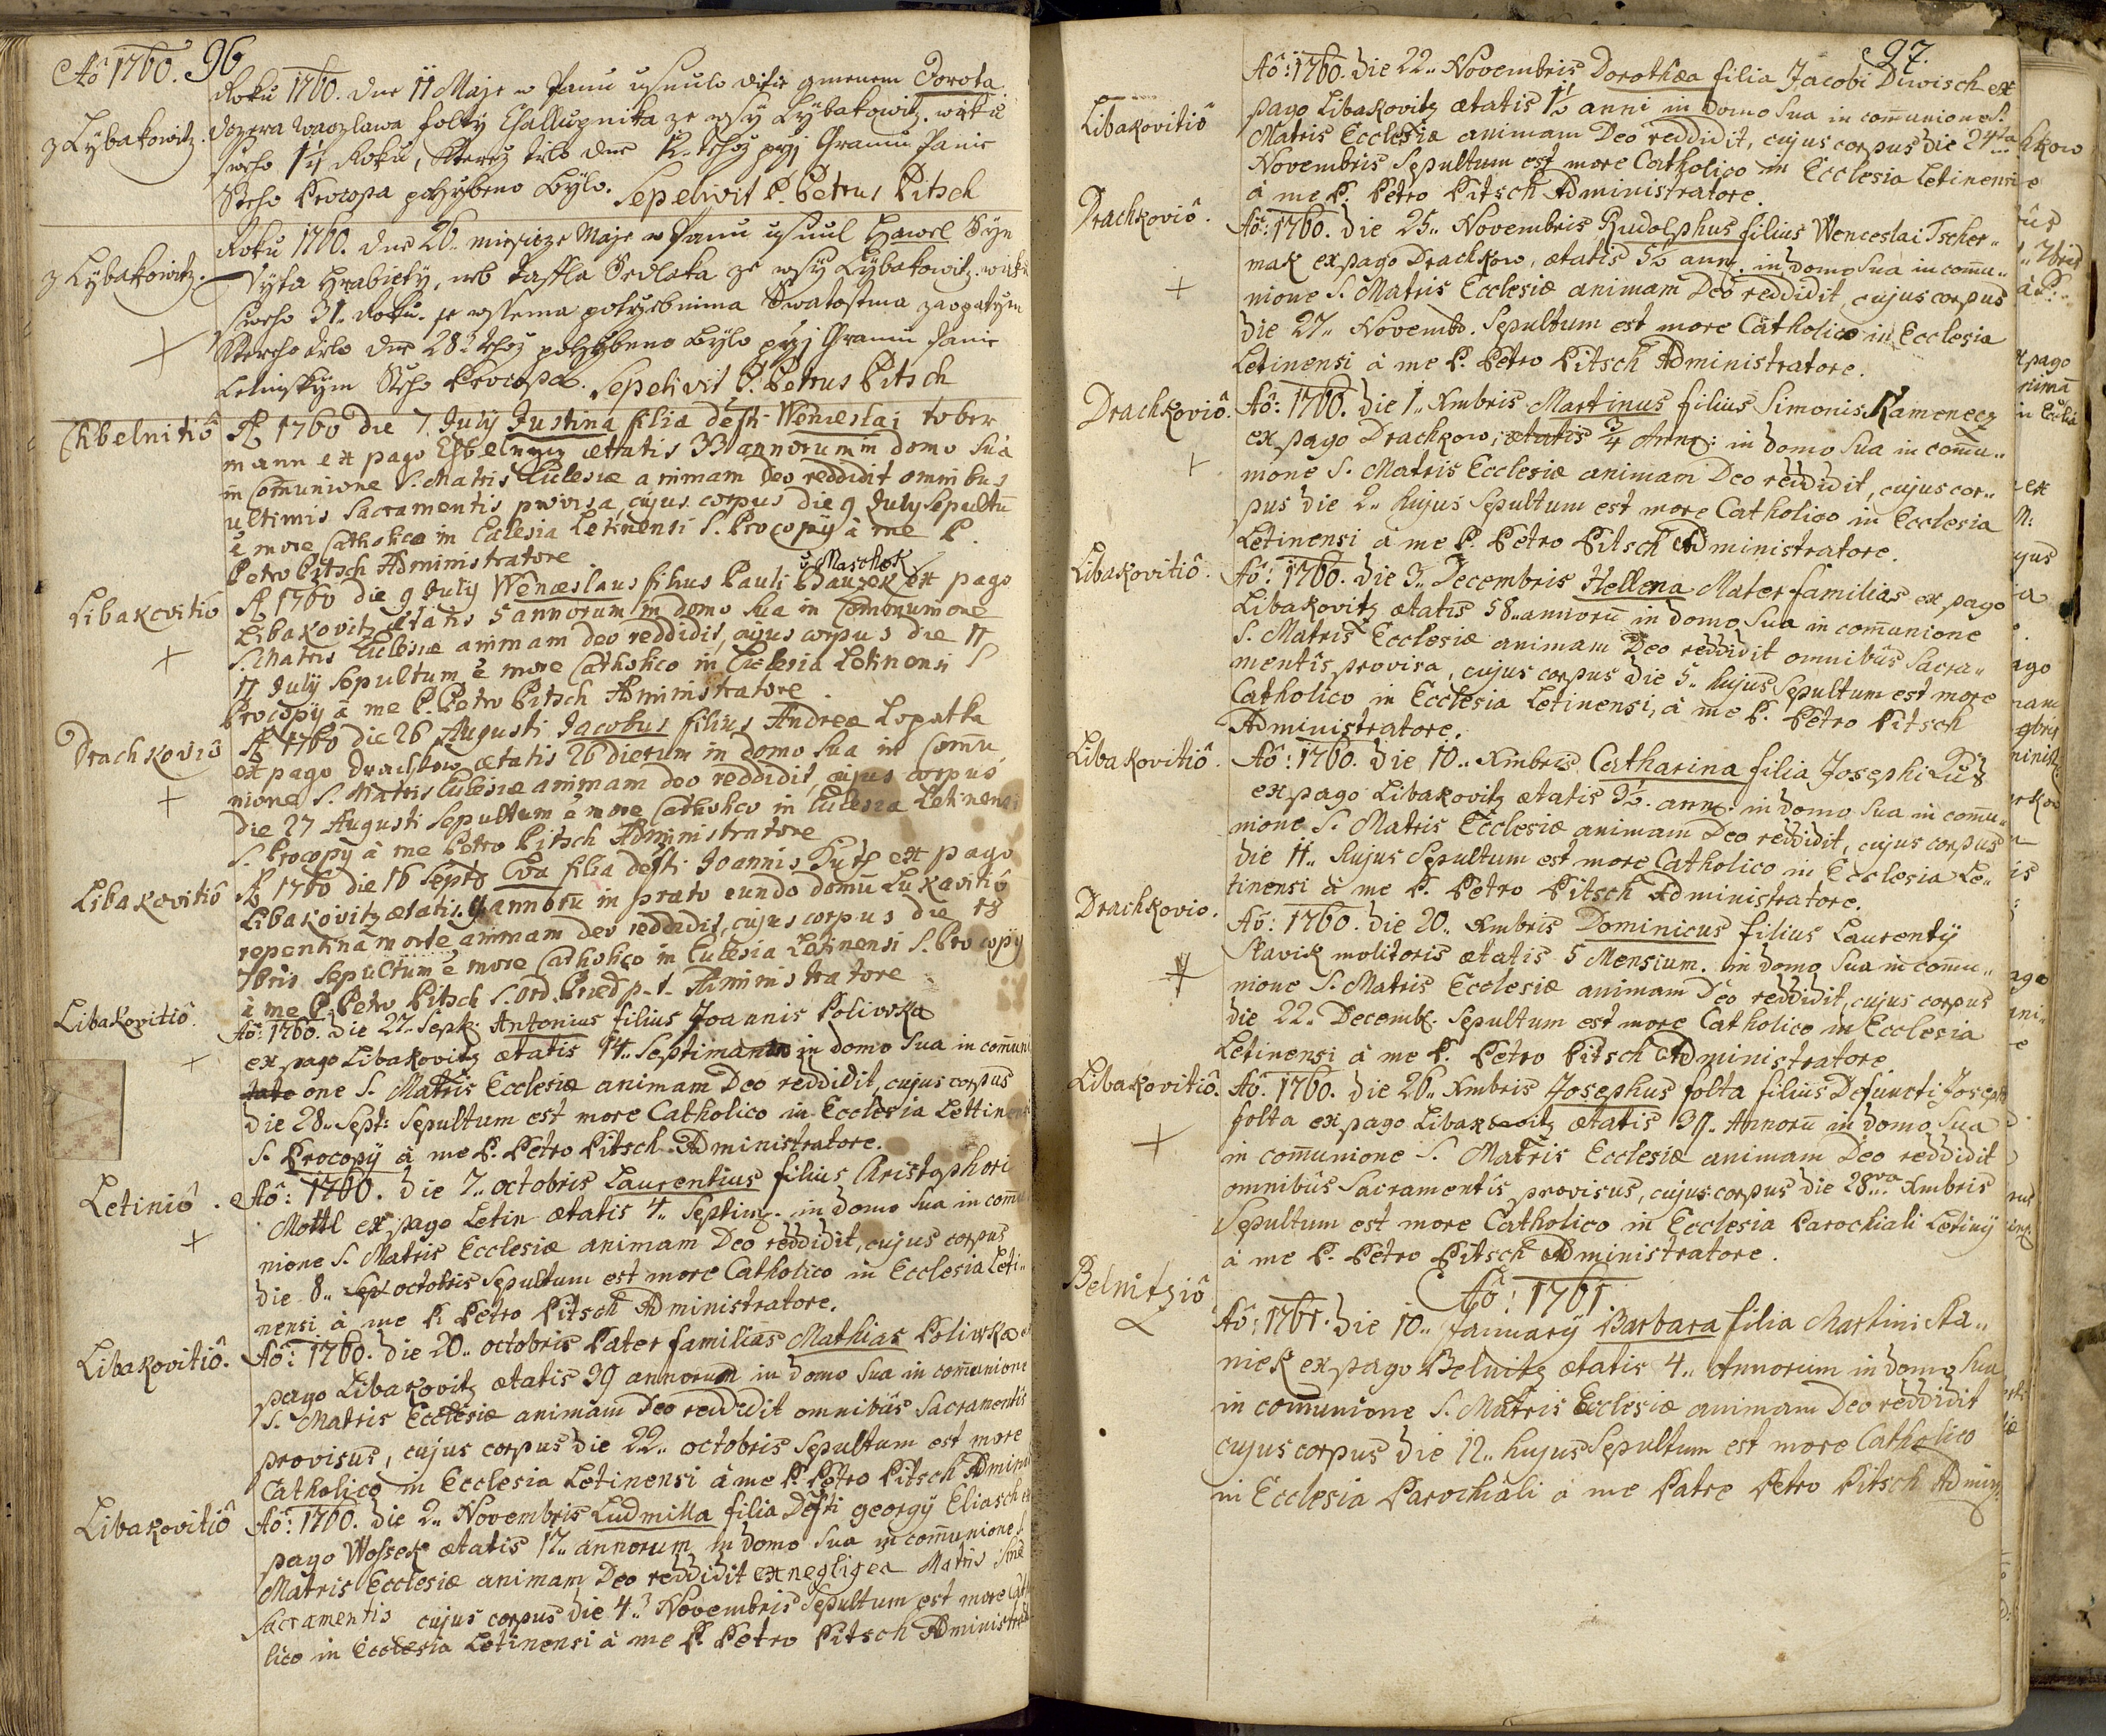 Aô 1760. 96
Roku 1760. dne 11 Maje w Panu usnulo ditie gmenem Dorota
z Lybakowitz. dczera Waczlawa folty Chalupnika ze wsy Lybakowitz. wieku
sweho 1½ Roku, kterez tielo dne 12. tehoz przj Chramu Panie
Steho Procopa pohrzbeno bylo. Sepelivit P. Petrus Pitsch
Roku 1760. dne 26.. miesicze Maje w Panu usnul Hawel Syn
z Lybakowitz. Vyta Hrabiety, neb Sedlaka ze wsy Lybakowitz. wieku
sweho 31. Roku. se wssema potrzebnima Swatostma zaopatrzen
+ kterehoz tielo dne 28. tehoz pohrzbeno bylo przj Chramu Panie
Letinskym Steho Procopa. Sepelivit P. Petrus Pitsch
Chbelnitiô A 1760 die 7. July Justina filia defti Wenceslai tober
mann ex pago Chbelnycz ætatis 33 annorum in domo suâ
in Communione S. Matris Ecclesiæ animam deo reddidit omnibus
ultimis sacramentis provisa, cujus corpus die 9 July Sepultū
ê more Catholico in Eclesia Letinensi S. Procopÿ à me P.
Petro Pitsch Administratore
v Maschek
Libakovitiô A 1760 die 9 July Wenceslaus filius Pauli Hauzek ex pago
Libakovitz ætatis 5 annorum in domo sua in Communione
+ S. Matris Ecclesiæ animam deo reddidit, cujus corpus die 11
11 July sepultum ê more Catholico in Eclesia Letinensi S
Procopÿ à me P. Petro Pitsch Administratore.
Drachkoviô A 1760 die 26 Augusti Jacobus filius Andreæ Lopatka
ex pago Drachkow ætatis 26 dierum in domo sua in Comū
+ nione S. Matris Ecclesiæ animam deo reddidit, cujus corpus
die 27 Augusti sepultum ê more Catholico in Eclesia Letinensi
S. Procopÿ à me Petro Pitsch Administratore
Libakovitiô A 1760 die 16 Septb Eva filia defti Joannis ex pago
Libakovitz ætatis annorū in prato eundo domū Lukavitiô
repentina morte animam deo reddidit, cujus corpus die 18
7bris sepultum ê more Catholico in Eclesia Letinensi S. Procopÿ
à me P. Petro Pitsch S. Ord. Administratore
Libakovitiô. Aô: 1760. Die 27.. Sept: Antonius filius Joannis Polivka
ex pago Libakovitz ætatis 14.. Septiman in domo sua in comuni
+ one S. Matris Ecclesiæ animam Deo reddidit, cujus corpus
die 28.. Sept: Sepultum est more Catholico in Ecclesia Lettinens
S. Procopÿ à me P. Petro Pitsch Administratore.
Letiniô. Aô: 1760. Die 7.. octobris Laurentius filius Christophori
Mottl ex pago Letin ætatis 4.. Septim: in domo sua in comu
+ nione S. Matris Ecclesiæ animam Deo reddidit, cujus corpus
die 8.. Sep octobris Sepultum est more Catholico in Ecclesia Leti..
nensi à me P. Petro Pitsch Administratore.
Libakovitiô. Aô: 1760. Die 20.. octobris Pater familias Mathias Polivka ex
pago Libakovitz ætatis 39 annorum in domo sua in comunione
S. Matris Ecclesiæ animam Deo reddidit omnibus Sacramentis
provisus, cujus corpus die 22.. octobris Sepultum est more
Catholico in Ecclesia Letinensi à me P. Petro Pitsch Admini
Libakovitiô Aô: 1760. Die 2.. Novembris Ludmilla filia Defti georgÿ Eliasch ex
pago Wossek ætatis 17.. annorum in domo sua in comunione S.
Matris Ecclesiæ animam Deo reddidit ex negligea Matris sine
Sacramentis cujus corpus die 4.. Novembris Sepultum est more Catho
lico in Ecclesia Letinensi à me P. Petro Pitsch Administrat
97.
Aô: 1760. Die 22.. Novembris Dorothæa filia Jacobi Diwisch ex
Libakovitiô pago Libakovitz ætatis 1½ anni in domo sua in comunione S.
Matris Ecclesiæ animam Deo reddidit, cujus corpus die 24ta
Novembris Sepultum est more Catholico in Ecclesia Letinensi
à me P. Petro Pitsch Administratore.
Drachkoviô. Aô: 1760. Die 25.. Novembris Rudolphus filius Wenceslai Tscher..
mak ex pago Drachkow, ætatis 5½ ann: in domo sua in comu..
+ nione S. Matris Ecclesiæ animam Deo reddidit, cujus corpus
die 27.. Novemb. Sepultum est more Catholico in Ecclesia
Letinensi à me P. Petro Pitsch Administratore.
Drachkoviô. Aô: 1760. Die 1.. Xmbris Martinus filius Simonis Kamenecz
ex pago Drachkow, ætatis ¾ Anni: in domo sua in comu..
+ nione S. Matris Ecclesiæ animam Deo reddidit, cujus cor..
pus die 2.. hujus Sepultum est more Catholico in Ecclesia
Letinensi à me P. Petro Pitsch Administratore.
Libakovitiô. Aô: 1760. Die 3.. Decembris Hellena Mater familias ex pago
Libakovitz ætatis 58.. annorū in domo sua in comunione
S. Matris Ecclesiæ animam Deo reddidit omnibus Sacra..
mentis provisa, cujus corpus die 5.. hujus Sepultum est more
Catholico in Ecclesia Letinensi, à me P. Petro Pitsch
Administratore.
Libakovitiô. Aô: 1760. Die 10.. Xmbris Catharina filia Josephi
ex pago Libakovitz ætatis 9½. ann: in domo sua in comu..
nione S. Matris Ecclesiæ animam Deo reddidit, cujus corpus
die 11.. hujus Sepultum est more Catholico in Ecclesia Le..
tinensi à me P. Petro Pitsch Administratore.
Drachkovio. Aô: 1760. Die 20.. Xmbris Dominicus filius Laurentÿ
Slavik molitoris ætatis 5 Mensium. in domo sua in comu..
+ nione S. Matris Ecclesiæ animam Deo reddidit, cujus corpus
die 22.. Decemb. Sepultum est more Catholico in Ecclesia
Letinensi à me P. Petro Pitsch Administratore
Libakovitiô. Aô. 1760. Die 26.. Xmbris Josephus folta filius Defuncti Joseph
folta ex pago Libakovitz ætatis 39.. Annorū in domo sua
+ in comunione S. Matris Ecclesiæ animam Deo reddidit
omnibus Sacramentis provisus, cujus corpus die 28va Xmbris
Sepultum est more Catholico in Ecclesia Parochiali Letinÿ
à me P. Petro Pitsch Administratore.
Aô: 1761
Belnitziô Aô: 1761. Die 10.. January Barbara filia Martini Sta..
niek ex pago Belnitz ætatis 4.. Annorum in domo sua
in comunione S. Matris Ecclesiæ animam Deo reddidit
cujus corpus die 12.. hujus Sepultum est more Catholico
in Ecclesia Parochiali à me Patre Petro Pitsch Admin: